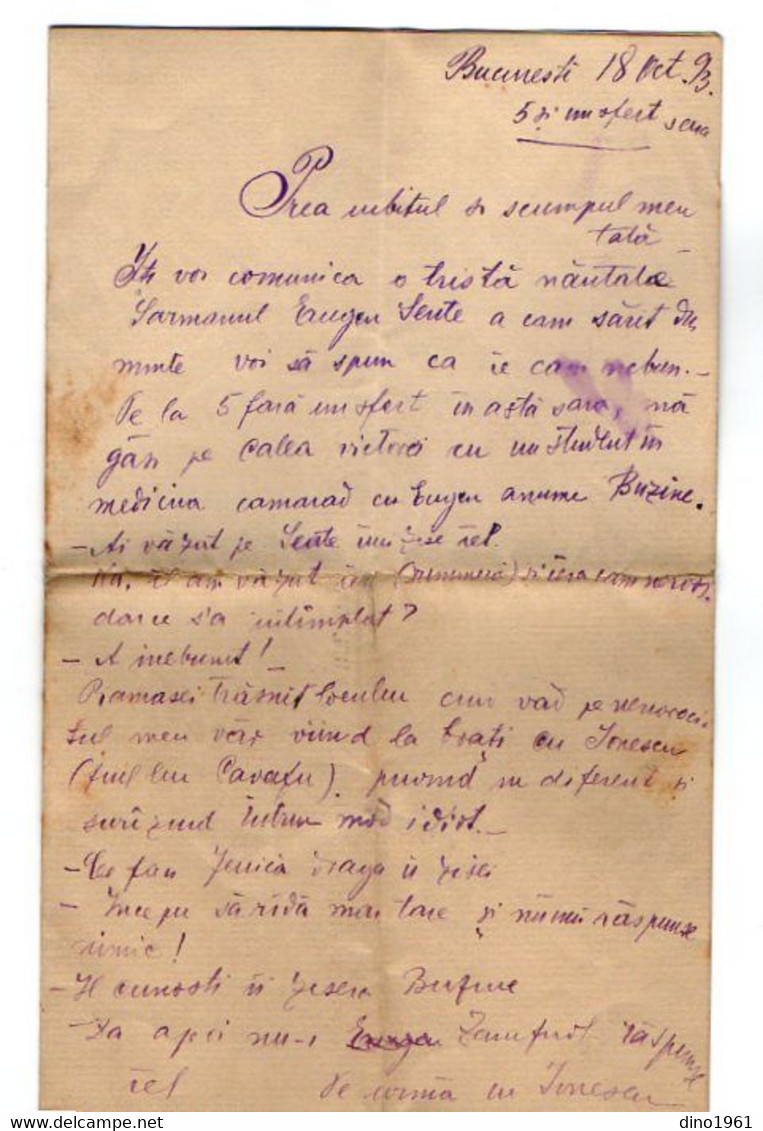 Bucuresti 18 Oct. 93.
5 și un sfert sera
Prea iubitul si scumpul meu
tată
Iți voi comunica o tristă
Sarmanul Eugen Sente a cam sărit din
minte voi să spun ca ie cam nebun.-
Pe la 5 fară un sfert în astă sara, mă
găsi pe Calea victoriei cu un student în
medicina camarad cu Eugen anume Buzine.
- Ai văzut pe Sente îmi zise iel.
Da, il am văzut și iera cam nervos.
darce s'a intîmplat?
- A inebunit!
Ramasei trăsnit locului cum văd pe nenoroci-
tul meu văr viind la brați cu Ionescu
(fiul lui Cavafu). privind in diferent și
surîzind întrun mod idiot.-
- Ce fai Jenica draga ii zisei
- Incepu să ridă mai tare și nu-mi răspunse
nimic!
- Il cunosti ii zisera Buzine
- Da apoi nu-i răspunse
iel De urmă cu Ionescu
dino1961